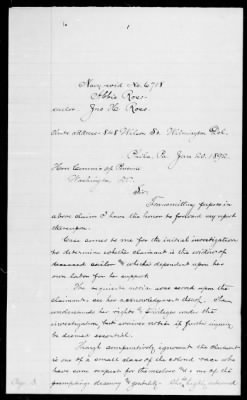 Navy wid No. 6718
Abbie Ross
Jno H. Ross
Clmts address - 848 Wilson St. Wilmington Del.
Phila. Pa Jan 20. 1892.
Hon Commis of Pensions
Washington D.C.
Sir:
Transmitting papers in
above claim I have the honor to forward my report
thereupon.
Case comes to me for the initial investigation
to determine whether claimant is the widow of
deceased sailor & whether dependent upon her
own labor for her support
The requisite notice was served upon the
claimant: see her acknowledgment. She
understands her rights & privileges under the
investigation, but waives notice if further inquiry
be deemed essential.
Though comparatively ignorant the claimant
is one of a small class of the colored race who
have some respect for themselves & is one of the
promptings decency & probity. She highly